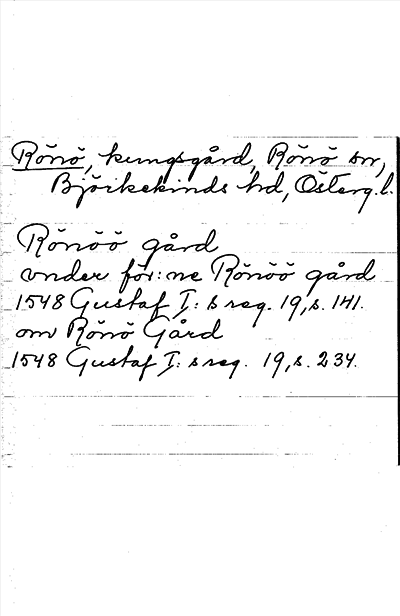 Rönö, kungsgård, Rönö sn,
Björkekinds hd, Österg. l.
Rönöö gård
vnder för:ne Rönöö gård
1548 Gustaf I:s reg. 19, s. 141.
om Rönö Gård
1548 Gustaf I:s reg. 19, s. 234.